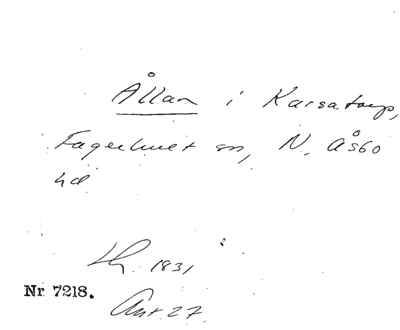 Ållan i Karsatorp,
Fagerhult sn, N. Åsbo
hd
Lh. 1831
Nr 7218.
Akt 27.